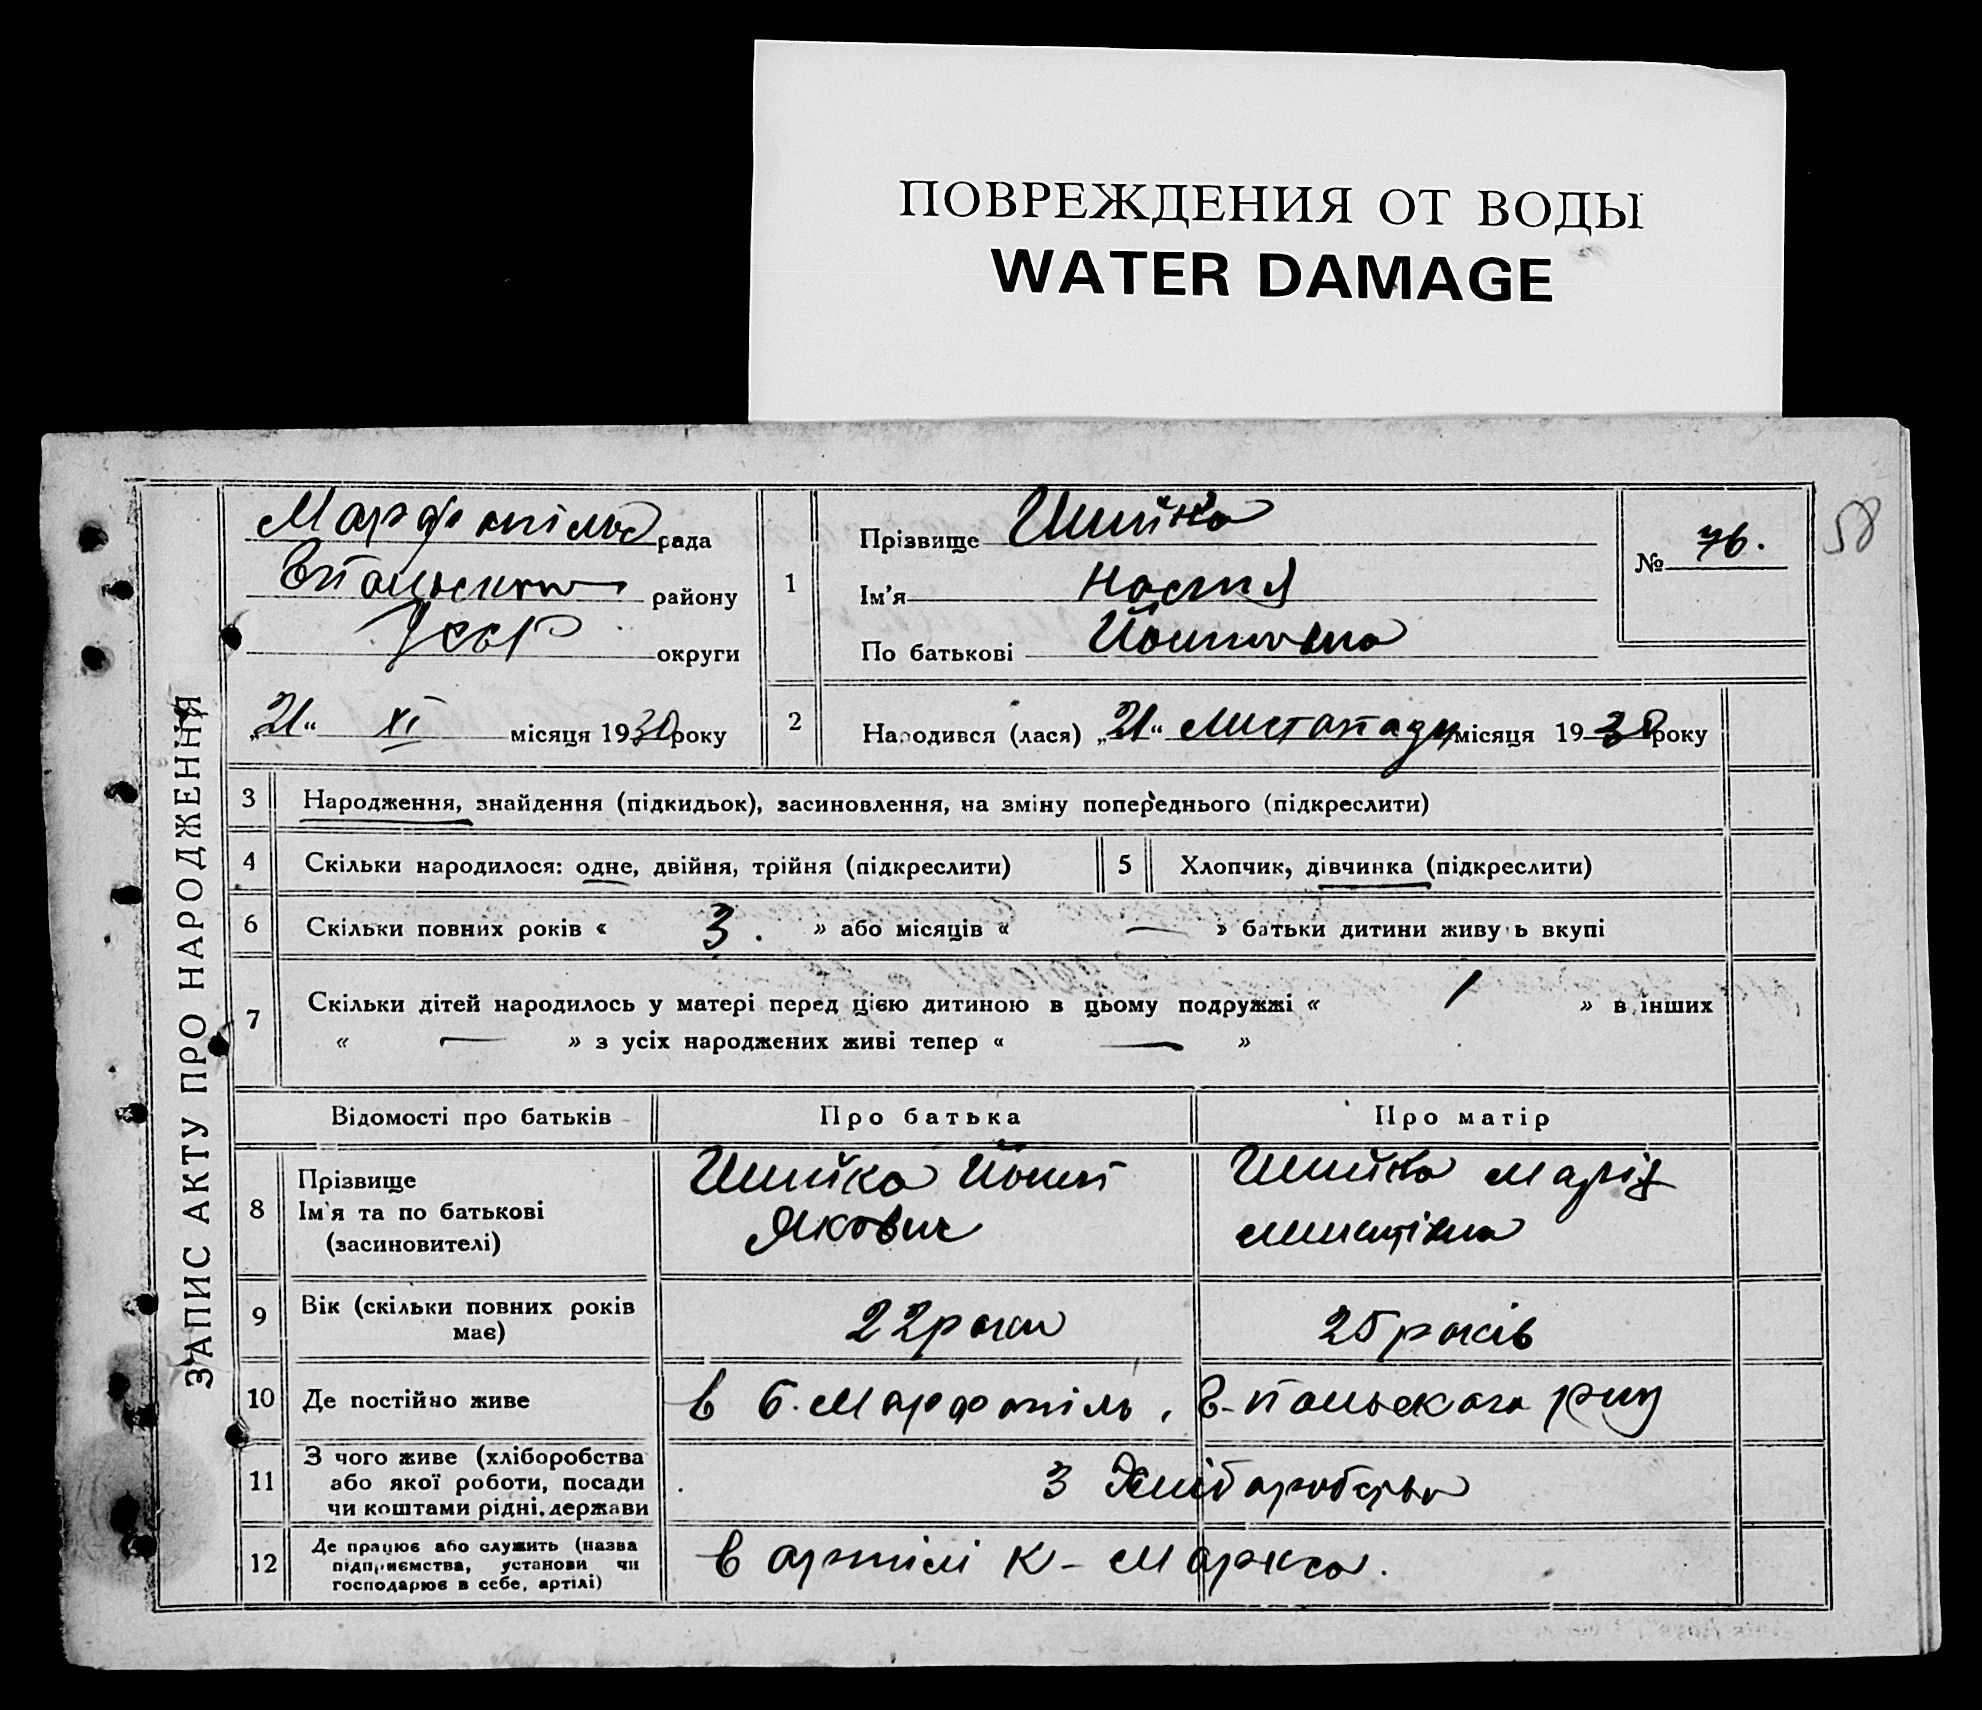 ПОВРЕЖДЕНИЯ ОТ ВОДЫ
WATER DAMAGE
58
ЗАПИС АКТУ ПРО НАРОДЖЕННЯ
рада
району
УССР округи
„21“ XI місяця 1930 року
1 Прізвище Шийка
Ім'я Настя
По батькові
№ 76.
2 Народився (лася) „21“ Листопаду місяця 1930 року
3 Народження, знайдення (підкидьок), засиновлення, на зміну попереднього (підкреслити)
4 Скільки народилося: одне, двійня, трійня (підкреслити) 5 Хлопчик, дівчинка (підкреслити)
6 Скільки повних років « 3. » або місяців « — » батьки дитини живуть вкупі
7 Скільки дітей народилось у матері перед цією дитиною в цьому подружжі « 1 » в інших
« — » з усіх народжених живі тепер « — »
Відомості про батьків Про батька Про матір
8 Прізвище
Ім'я та по батькові
(засиновителі)
Шийка
Якович
Шийка Марія
9 Вік (скільки повних років
має)
22 роки 25 років
10 Де постійно живе в с. Марфопіль, В-Польского р-ну
11 З чого живе (хліборобства
або якої роботи, посади
чи коштами рідні, держави
З Хліборобства
12 Де працює або служить (назва
підприємства, установи чи
господарює в себе, артілі)
в артілі К-Маркса.